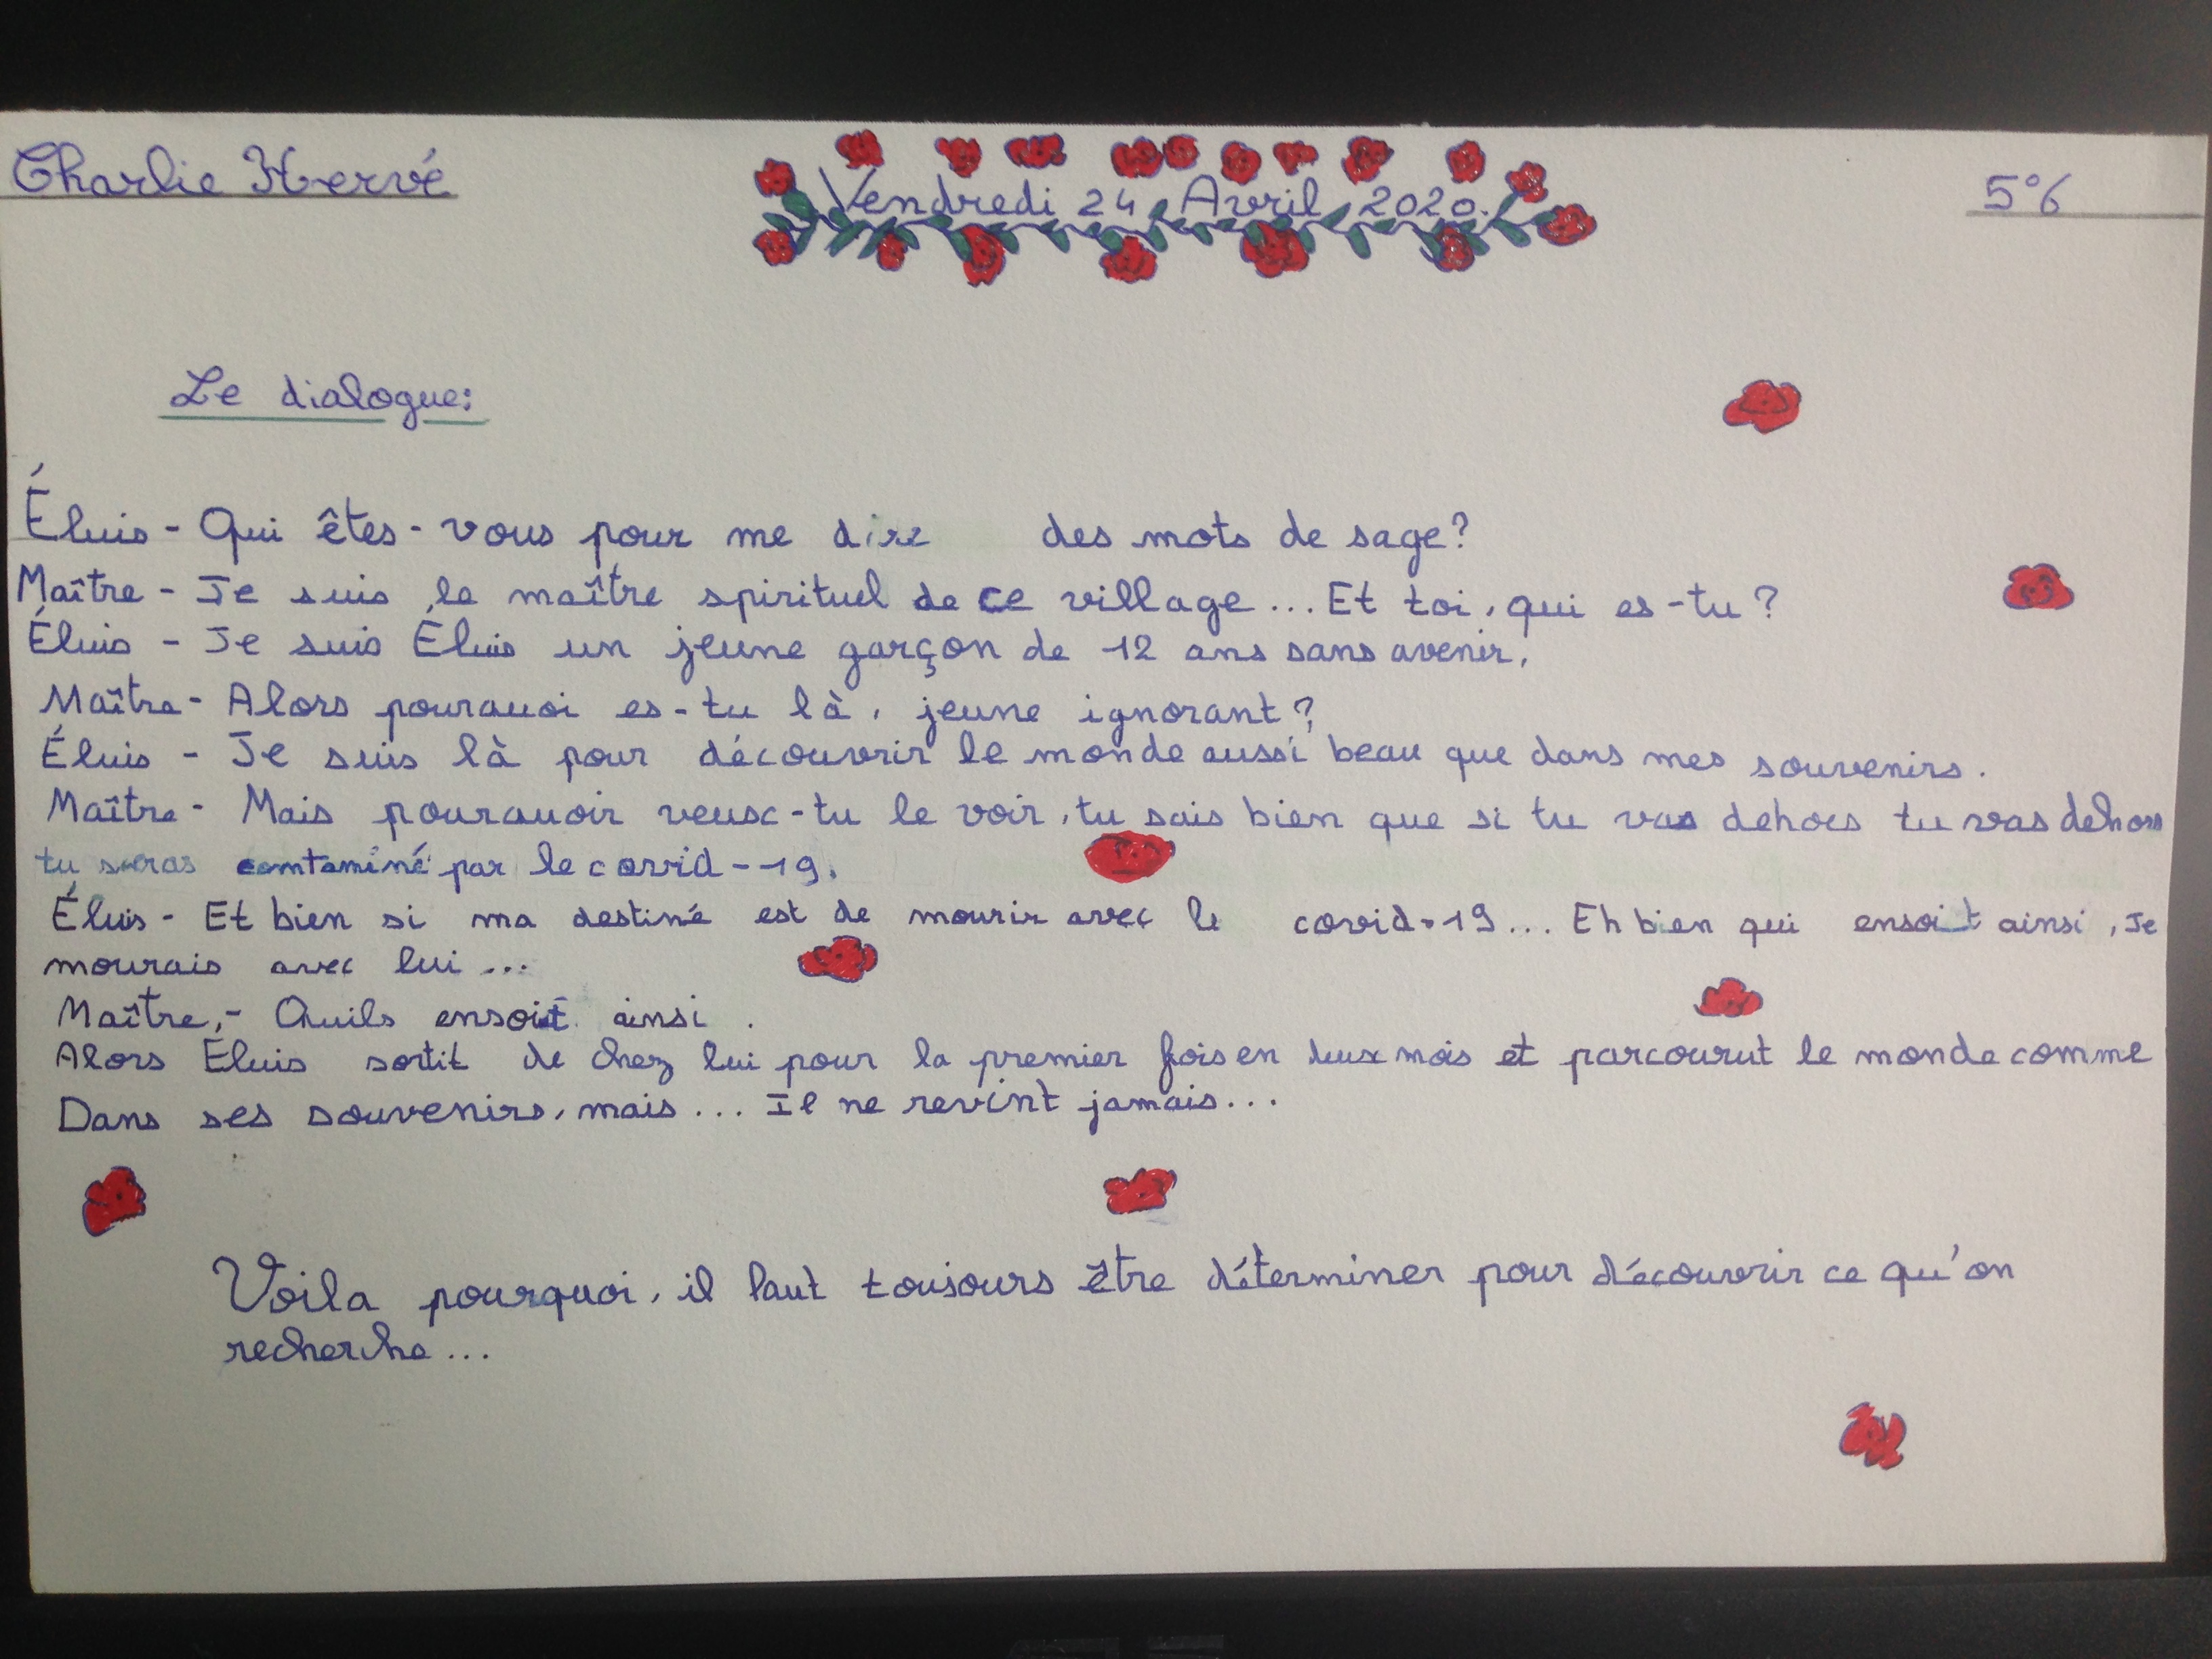 Charlie Hervé
Vendredi 24 Avril 2020.
5°6
Le dialogue:
Éluis - Qui êtes-vous pour me dire des mots de sage?
Maître - Je suis le maître spirituel de ce village... Et toi, qui es-tu?
Éluis - Je suis Éluis un jeune garçon de 12 ans sans avenir.
Maître - Alors pourauoi es-tu là, jeune ignorant?
Éluis - Je suis là pour découvrir le monde aussi beau que dans mes souvenirs.
Maître - Mais pourauoir veux-tu le voir, tu sais bien que si tu vas dehors tu vas dehors
tu seras contaminé par le covid-19.
Éluis - Et bien si ma destiné est de mourir avec le covid-19... Eh bien qui ensoit ainsi, Je
mourais avec lui...
Maître,- Quils ensoit ainsi.
Alors Éluis sortit de chez lui pour la premier fois en deux mois et parcourut le monde comme
Dans ses souvenirs, mais... Il ne revint jamais...
Voila pourquoi, il faut toujours être déterminer pour découvrir ce qu'on
recherche...